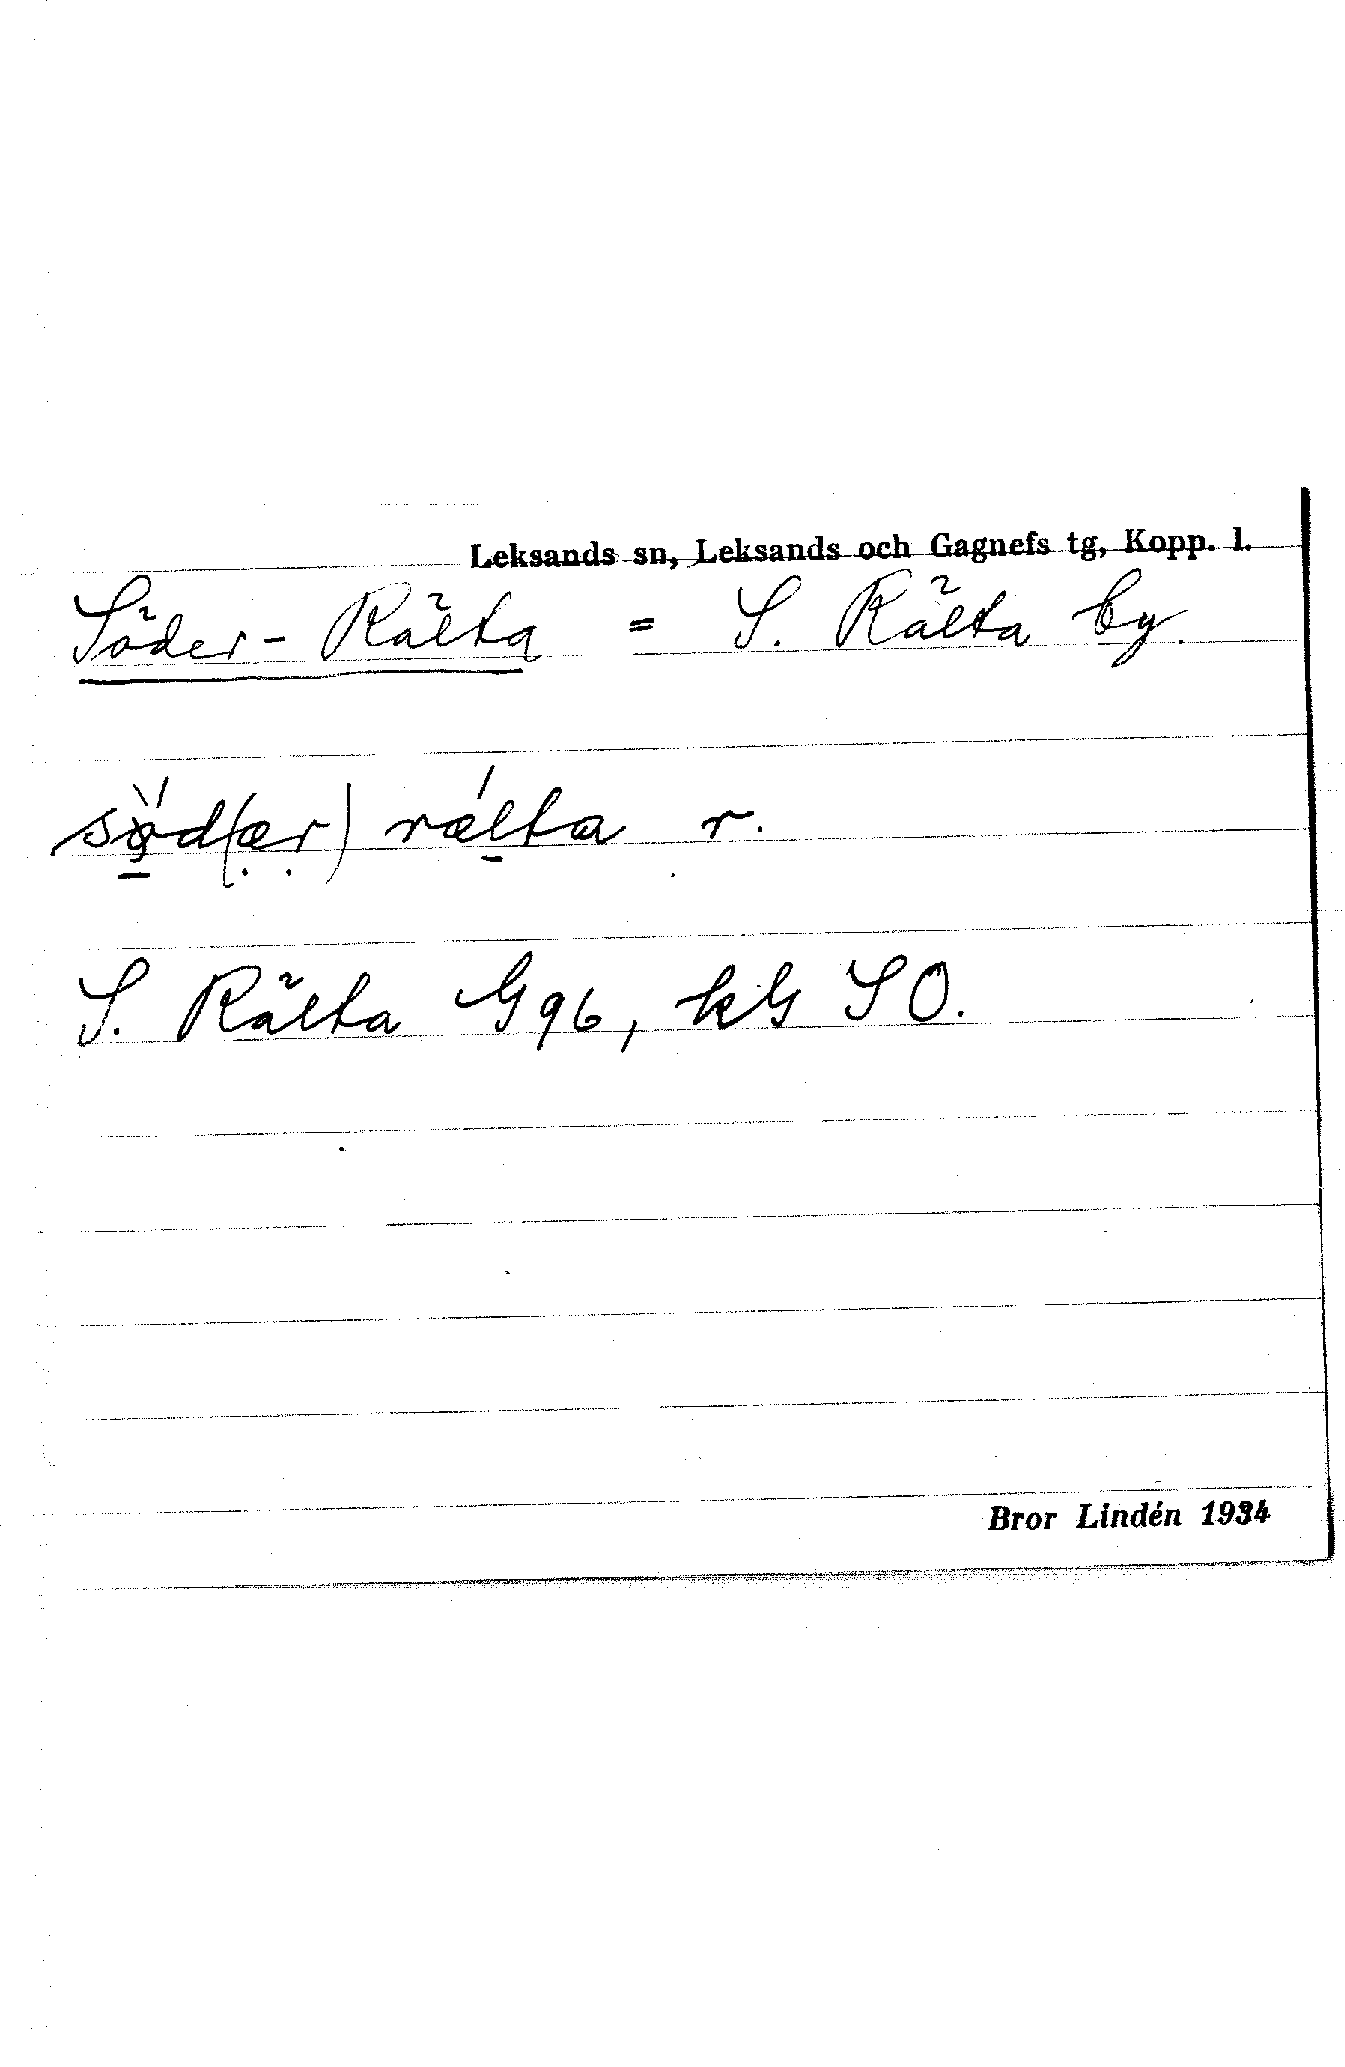 Leksands sn, Leksands och Gagnefs tg, Kopp. l.
Söder-Rälta = S. Rälta by.
sǿ̀d(ær) rǽlta r.
S. Rälta G96, kG SO.
Bror Lindén 1934